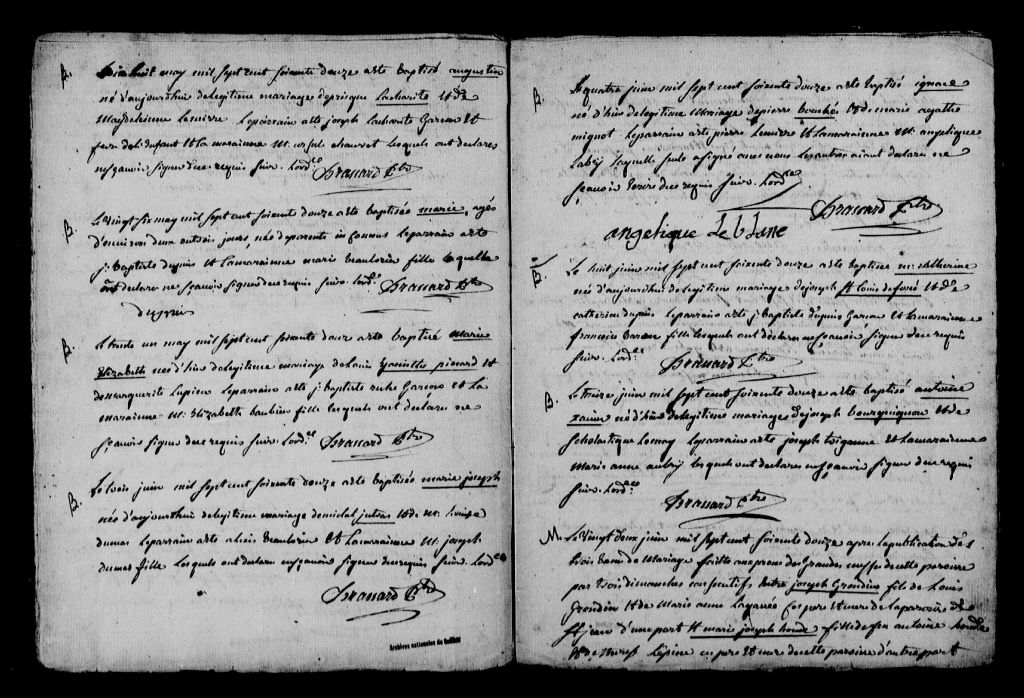 B.
may mil sept cent soixante douze a ete baptisé augustin
né d'aujourd'huy de legitime mariage de prisque Lacharité et de
Magdeleine Lemire Le parrain a ete joseph Lacharité Garson et
feu de et La maraine M. ursule chauret Lesquels ont declarés
ne sçavoir signer de ce requis suiv. Lord.ce
Brassard Ptre
B.
Le vingt six may mil sept cent soixante douze a ete baptisée marie, agés
d'environ deux ou trois jours, née de parents inconnus Le parrain a ete
j: Baptiste dupuis et La maraine marie fille Lesquelle
ont declaré ne sçavoir signer de ce requis suiv. Lord.ce Brassard Ptre
B.
Le trente un may mil sept cent soixante douze a ete baptisé marie
Elizabeth née d'hier de legitime mariage de Louis pinard et
de Marguerite Lupien Le parrain a ete j: baptiste Garson et La
maraine M: Elizabeth beaubien fille Lesquels ont declaré ne
sçavoir signer de ce requis suiv. Lord.ce
Brassard Ptre
B.
Le trois juin mil sept cent soixante douze a ete baptisée marie joseph
née d'aujourd'huy de legitime mariage de michel jutras et de M: Louise
dumas Le parrain a ete alexis et La maraine M. joseph
dumas fille Lesquels ont declaré ne sçavoir signer de ce requis suiv. Lord.ce
Brassard Ptre
Archives nationales du Québec
B.
Le quatre juin mil sept cent soixante douze a ete baptisé ignace
né d'hier de legitime mariage de pierre bouché et de marie agathe
mignot Le parrain a ete pierre Lemire et La maraine M. angelique
Labbé Laquelle seule a signé avec nous Les autres aiant declaré ne
sçavoir ecrire de ce requis suiv. Lord.ce
Brassard Ptre
angelique Le blanc
B.
Le huit juin mil sept cent soixante douze a ete baptisée M. Catherine
née d'aujourd'huy de legitime mariage de joseph et de
catherine dupuis Le parrain a ete j. Baptiste dupuis Garson et La maraine
françoise fille Lesquels ont declaré ne sçavoir signer de ce requis
suiv. Lord.ce
Brassard Ptre
B.
Le treize juin mil sept cent soixante douze a ete baptisé antoine
né d'hier de legitime mariage de joseph bourguignon et de
Scholastique Lemay Le parrain a ete joseph et La maraine
Marie anne aubry Lesquels ont declaré ne sçavoir signer de ce requis
suiv. Lord.ce
Brassard Ptre
M.
Le vingt deux juin mil sept cent soixante douze apres la publication des
trois bans de Mariage faitte aux prones des Grandes messes de cette paroisse
par trois dimanches consecutifs Entre joseph Grondin fils de Louis
Grondin et de Marie anne ses pere et mere de la paroisse de
St jean d'une part et marie joseph houde fille de feu antoine houde
et de Lépine ses pere et mere de cette paroisse d'autre part